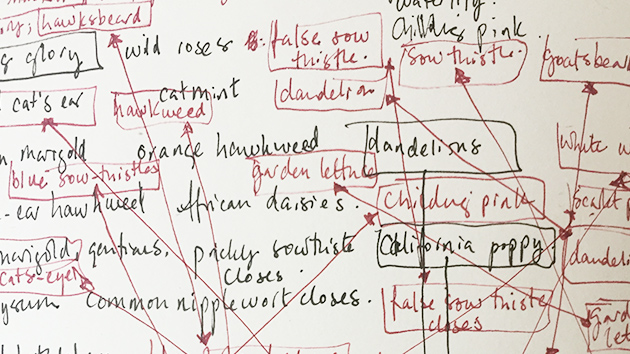 hawksbeard
glory
wild roses
false sow
thistle.
Childing pink.
sow thistle.
goatsbeard
cat's ear
hawkweed
catmint
dandelion
marigold
orange hawkweed
dandelions
white
blue sow-thistles
garden lettuce
-ear hawkweed
African daisies.
Childing pink
scarlet
marigold, gentians, prickly sowthistle
closes.
California poppy
dandelio
cats-eye
alyssum common nipplewort closes.
false sow thistle
closes
gard
lett